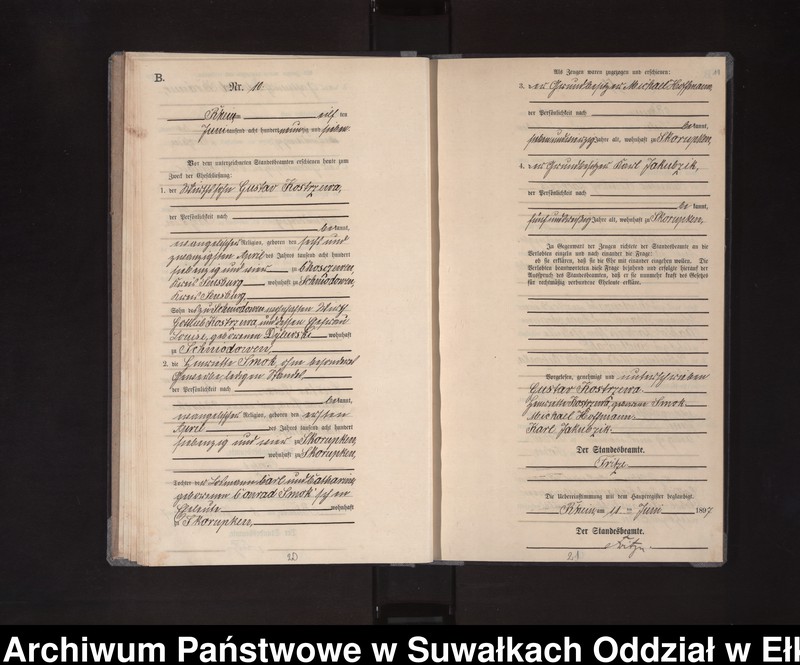 B.
Nr. 10.
Rhein am elf ten
Juni tausend acht hundert neunzig und sieben
Vor dem unterzeichneten Standesbeamten erschienen heute zum
Zweck der Eheschließung:
1. der Wirthssohn Gustav Kostrzewa,
der Persönlichkeit nach
be kannt,
evangelischer Religion, geboren den sechs und
zwanzigsten April des Jahres tausend acht hundert
siebenzig und vier zu
Kreis Sensburg, wohnhaft zu Schmidowen,
Kreis Sensburg
Sohn des zu Schmidowen
Gottlieb Kostrzewa, und dessen Ehefrau
Louise, geborenen wohnhaft
zu Schmidowen,
2. die Henriette Smok, ohne besonderes
Gewerbe, ledigen Standes,
der Persönlichkeit nach
be kannt,
evangelischer Religion, geboren den ersten
April des Jahres tausend acht hundert
siebenzig und vier zu Skorupken,
wohnhaft zu Skorupken,
Tochter der Losmann Carl und Catharine
geborenen Conrad Smok'schen
Eheleute wohnhaft
zu Skorupken,
20
Als Zeugen waren zugezogen und erschienen:
3. der Grundbesitzer Michael Hoffmann
der Persönlichkeit nach
be kannt,
siebenundvierzig Jahre alt, wohnhaft zu Skorupken,
4. der Grundbesitzer Karl Jakubzik,
der Persönlichkeit nach
be kannt,
fünfunddreißig Jahre alt, wohnhaft zu Skorupken,
In Gegenwart der Zeugen richtete der Standesbeamte an die
Verlobten einzeln und nach einander die Frage:
ob sie erklären, daß sie die Ehe mit einander eingehen wollen. Die
Verlobten beantworteten diese Frage bejahend und erfolgte hierauf der
Ausspruch des Standesbeamten, daß er sie nunmehr kraft des Gesetzes
für rechtmäßig verbundene Eheleute erkläre.
Vorgelesen, genehmigt und unterschrieben
Gustav Kostrzewa
Henriette Kostrzewa, geborene Smok
Michael Hoffmann
Karl Jakubzik
Der Standesbeamte.
Fritze
Die Uebereinstimmung mit dem Hauptregister beglaubigt.
Rhein am 11 ten Juni 1897
Der Standesbeamte.
Fritze
21
Archiwum Państwowe w Suwałkach Oddział w Ełk